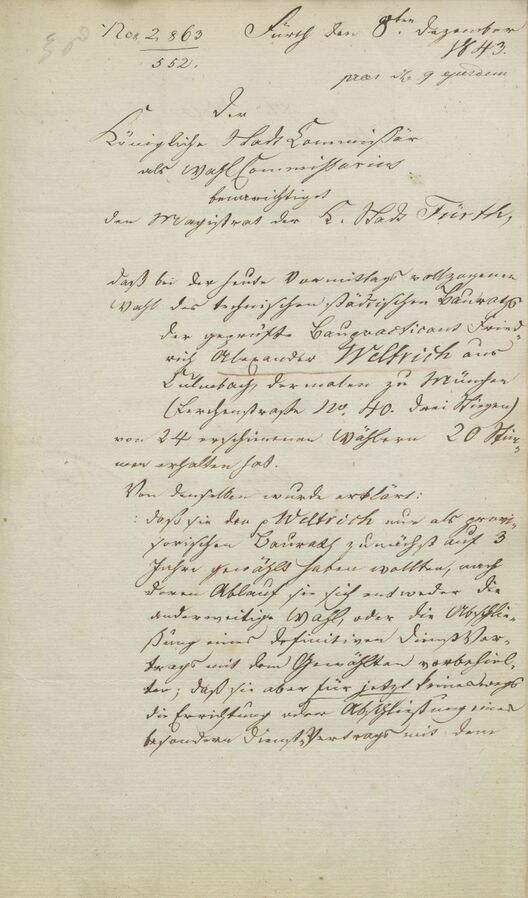 Nor. 2,863
552.
Fürth den 8ten Dezember
1843.
praes. die 9 ejusdem
Der
Königliche Stadt Commissär
als Wahl Commissarius
benachrichtiget
den Magistrat der K. Stadt Fürth,
daß bei der heute Vormittags vollzogenen
Wahl des technischen städtischen Bauraths
der geprüfte Baupracticant Fried=
rich Alexander Weltrich aus
Culmbach, dermalen zu München
(Lerchenstraße No. 40. drei Stiegen)
von 24 erschienenen Wählern 20 Stim=
men erhalten hat.
Von denselben wurde erklärt:
: daß sie den p Weltrich nur als provi=
sorischen Baurath zunächst auf 3
Jahre gewählt haben wollten, nach
deren Ablauf sie sich entweder die
anderweitige Wahl, oder die Abschlie=
ßung eines definitiven Dienst Ver=
trags mit dem Gewählten vorbehiel=
ten; daß sie aber für jetzt keineswegs
die Errichtung oder Abschließung eines
besondern Dienst Vertrags mit dem